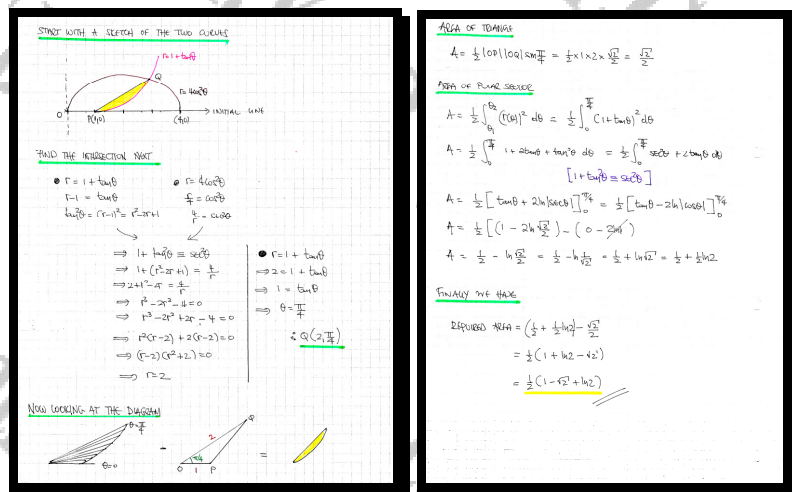 START WITH A SKETCH OF THE TWO CURVES
r=1+tanθ
Q
r=4cos²θ
O
P(1,0)
(4,0)
INITIAL LINE
FIND THE INTERSECTION NEXT
● r=1+tanθ
r-1 = tanθ
tan²θ = (r-1)² = r²-2r+1
● r=4cos²θ
r/4 = cos²θ
4/r = sec²θ
⇒ 1+tan²θ ≡ sec²θ
⇒ 1+(r²-2r+1) = 4/r
⇒ 2+r²-2r = 4/r
⇒ r³-2r²+2r-4=0
⇒ r²(r-2)+2(r-2)=0
⇒ (r-2)(r²+2)=0
⇒ r=2
● r=1+tanθ
⇒ 2=1+tanθ
⇒ 1=tanθ
⇒ θ=π/4
∴ Q(2,π/4)
NOW LOOKING AT THE DIAGRAM
θ=π/4
θ=0
-
Q
2
π/4
O
1
P
=
AREA OF TRIANGLE
A = ½|OP||OQ|sin π/4 = ½×1×2×√2/2 = √2/2
AREA OF POLAR SECTOR
A = ½∫θ₁^θ₂ (r(θ))² dθ = ½∫₀^π/4 (1+tanθ)² dθ
A = ½∫₀^π/4 1+2tanθ+tan²θ dθ = ½∫₀^π/4 sec²θ+2tanθ dθ
[1+tan²θ ≡ sec²θ]
A = ½[tanθ+2ln|secθ|]₀^π/4 = ½[tanθ-2ln|cosθ|]₀^π/4
A = ½[(1-2ln √2/2)-(0-2ln1)]
A = ½ - ln √2/2 = ½ - ln 1/√2 = ½ + ln√2 = ½ + ½ln2
FINALLY WE HAVE
REQUIRED AREA = (½ + ½ln2) - √2/2
= ½(1+ln2-√2)
= ½(1-√2+ln2)